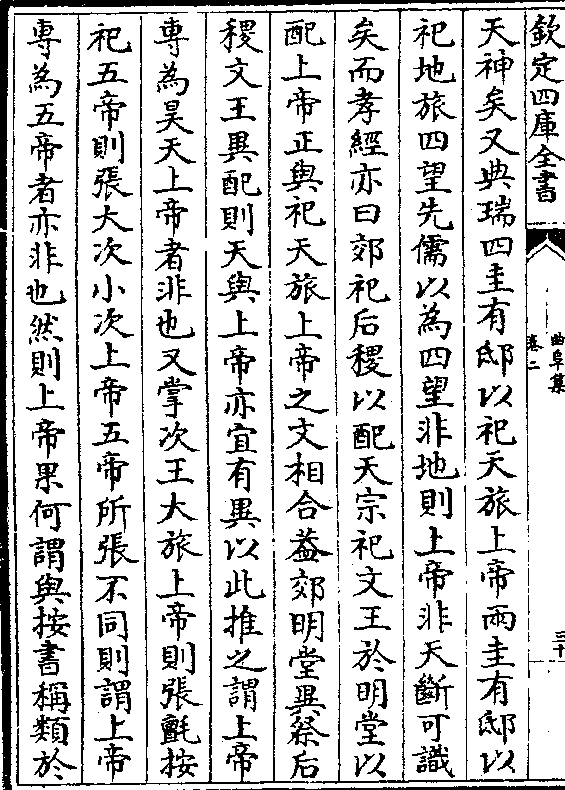 欽定四庫全書
曲阜集
卷二
三十
天神矣又典瑞四圭有邸以祀天旅上帝兩圭有邸以
祀地旅四望先儒以為四望非地則上帝非天斷可識
矣而孝經亦曰郊祀后稷以配天宗祀文王於明堂以
配上帝正與祀天旅上帝之文相合葢郊明堂異祭后
稷文王異配則天與上帝亦宜有異以此推之謂上帝
專為昊天上帝者非也又掌次王大旅上帝則張氈按
祀五帝則張大次小次上帝五帝所張不同則謂上帝
專為五帝者亦非也然則上帝果何謂與按書稱類於